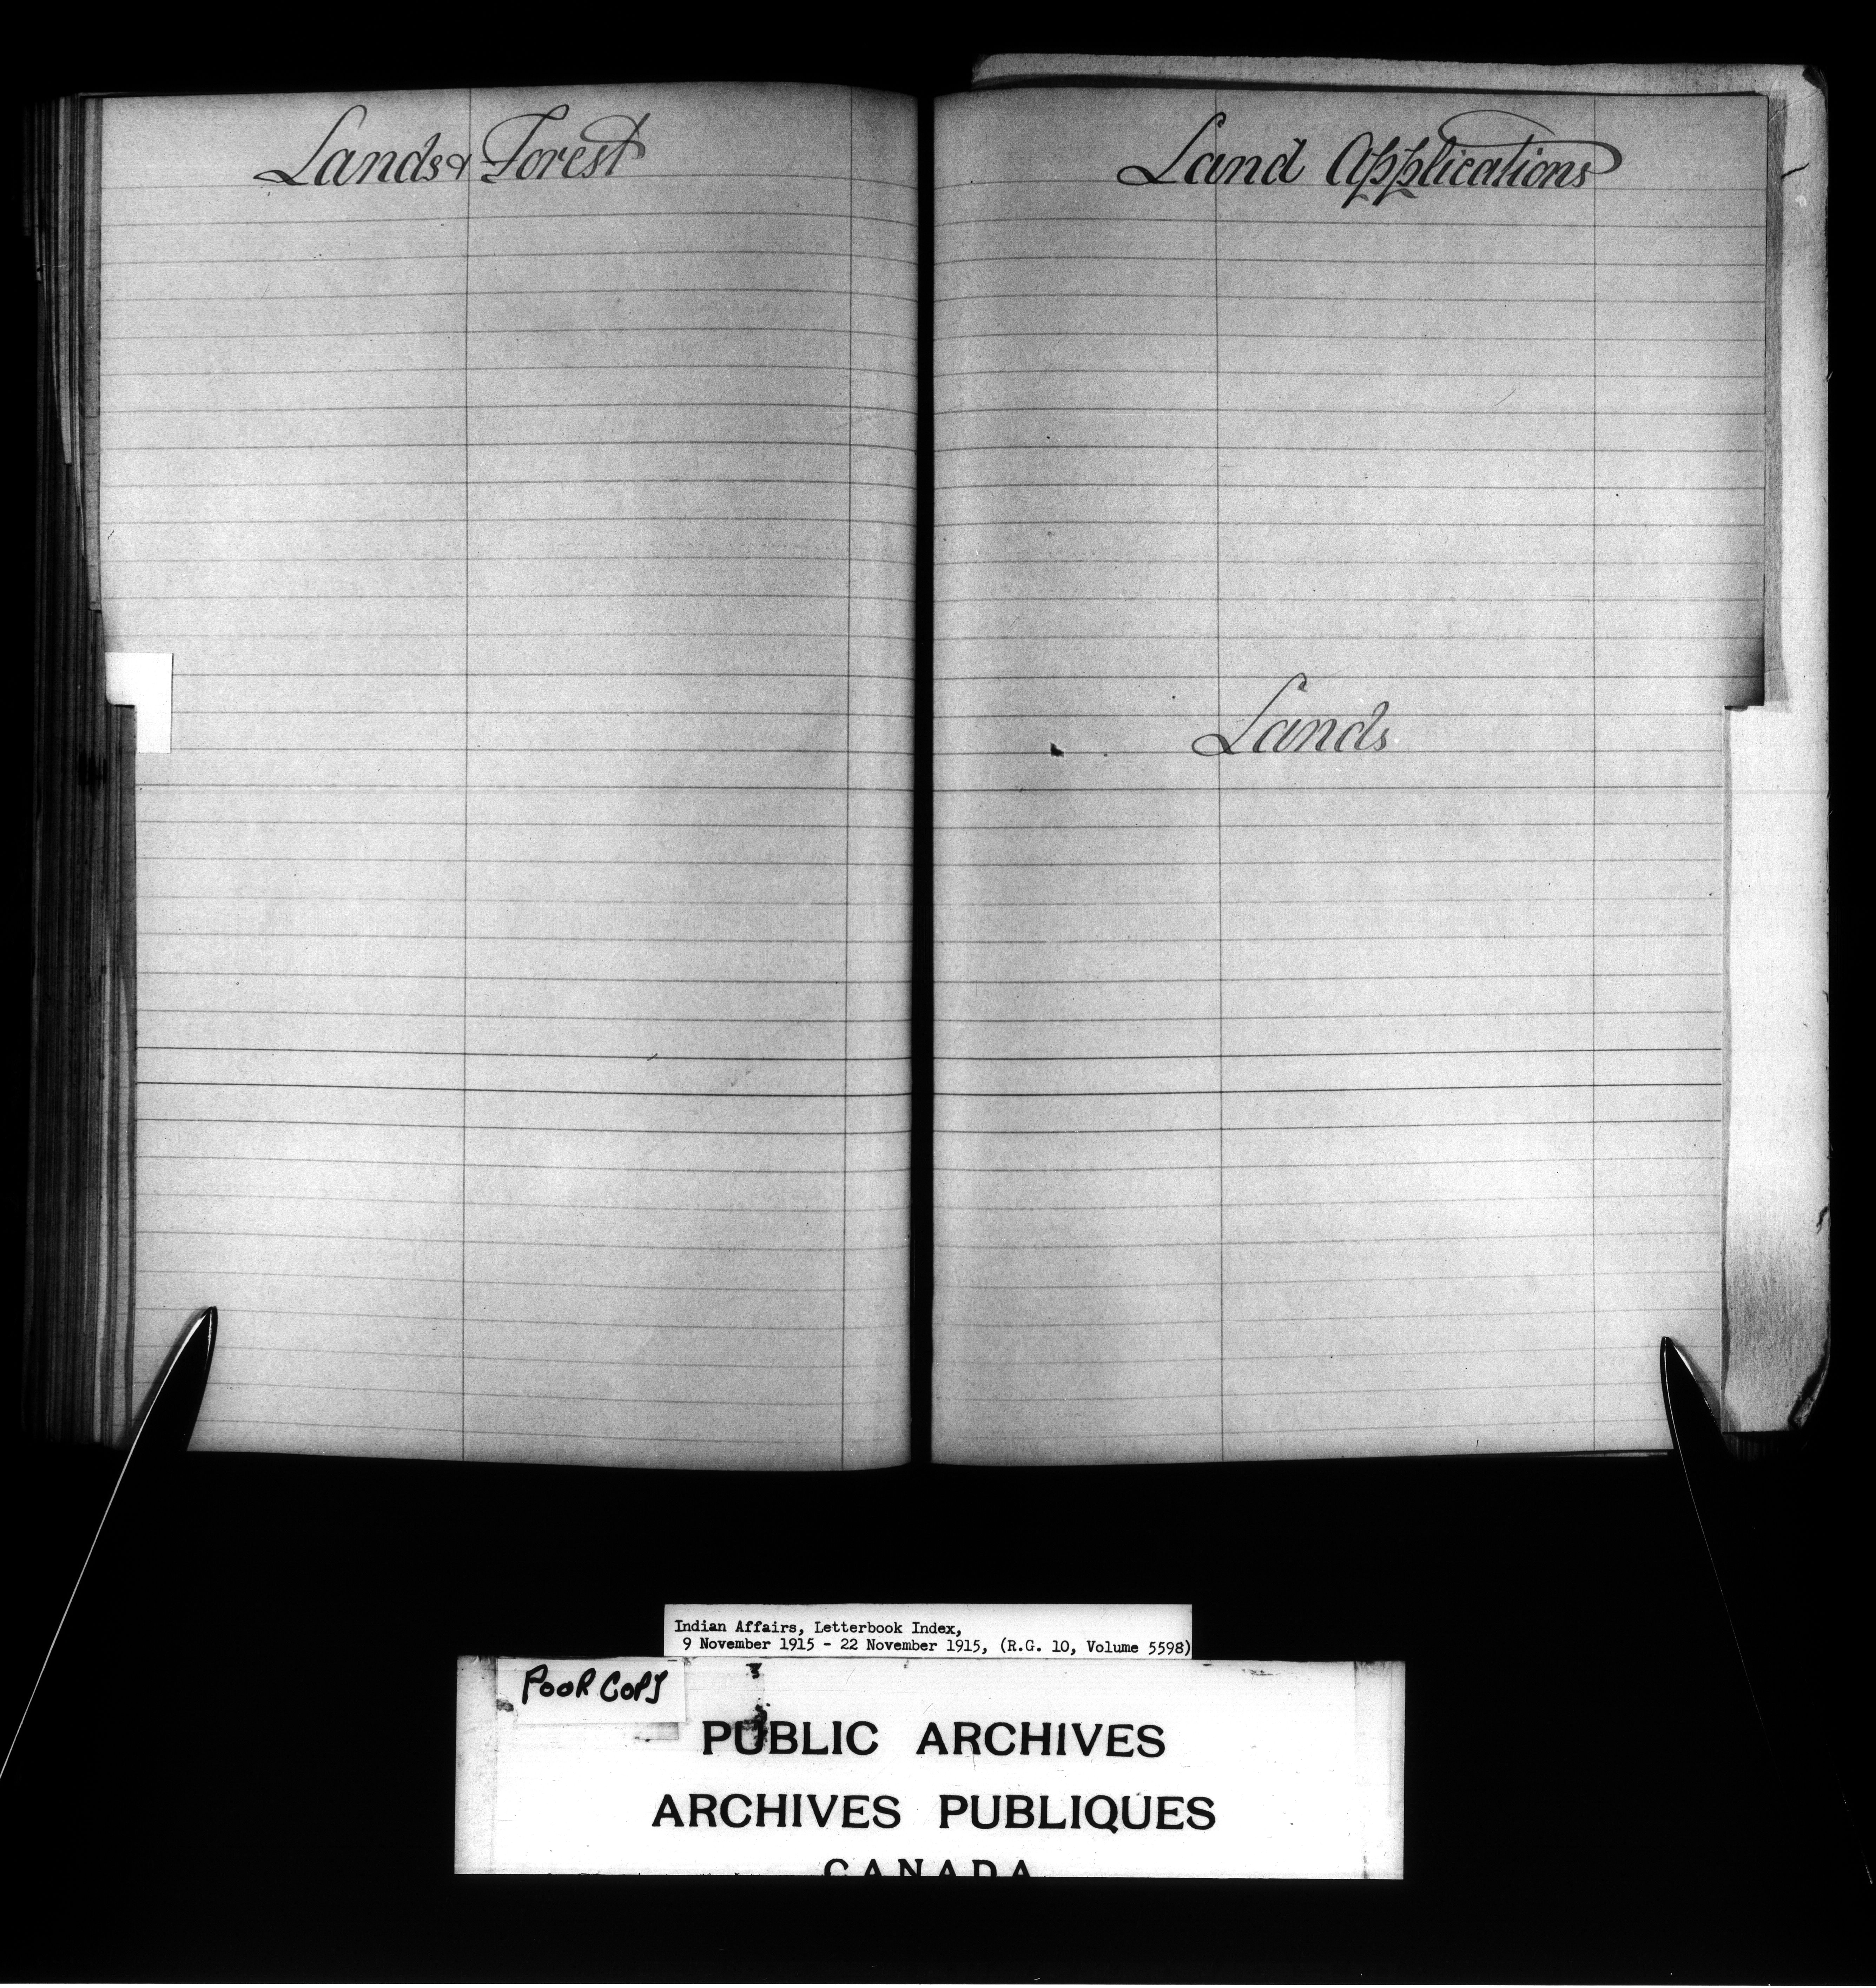 Lands & Forest
Land Applications
Lands
Indian Affairs, Letterbook Index,
9 November 1915 - 22 November 1915, (R.G. 10, Volume 5598)
POOR COPY
PUBLIC ARCHIVES
ARCHIVES PUBLIQUES
CANADA